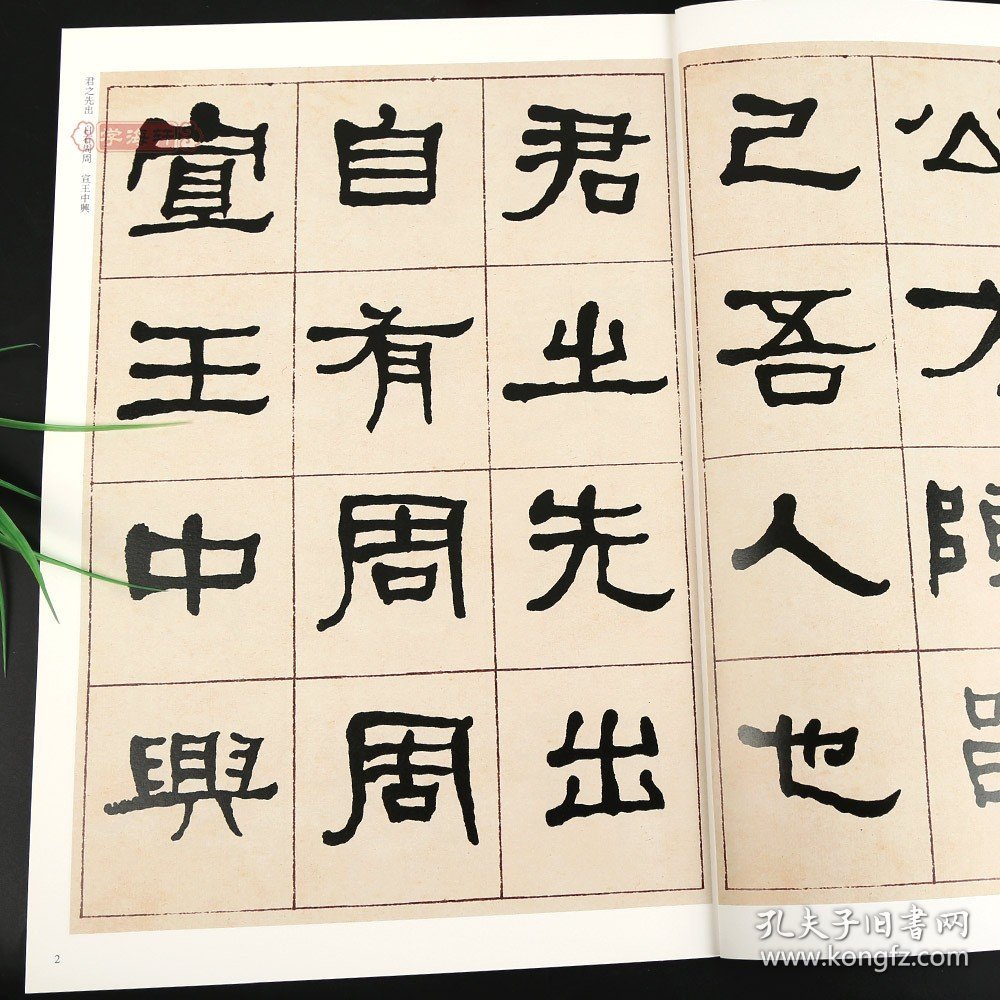 公
己吾人也
君之先出
自有周周
宣王中興
君之先出 自有周周 宣王中興
学海轩
2
孔夫子旧书网
www.kongfz.com